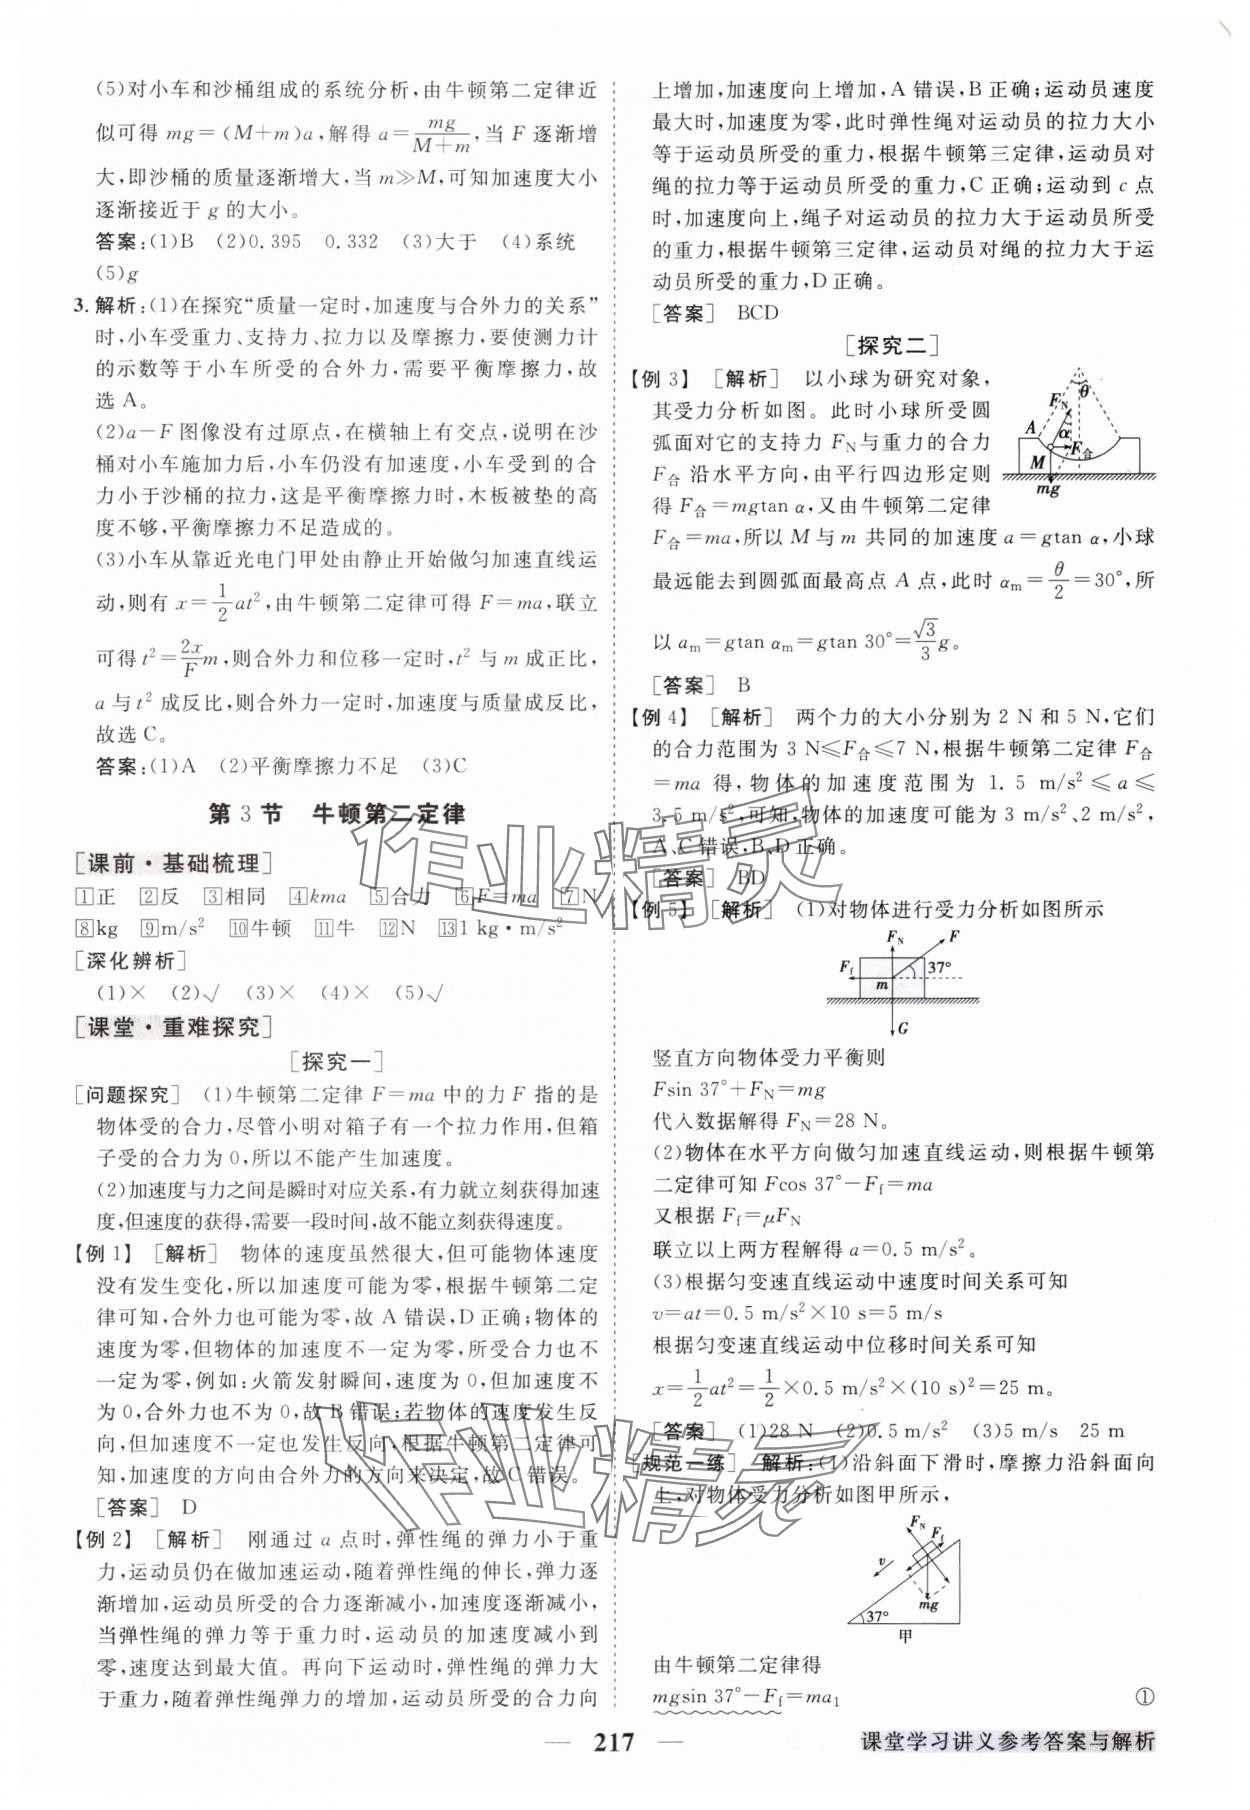 (5)对小车和沙桶组成的系统分析,由牛顿第二定律近
似可得 mg=(M+m)a,解得 a=mg/(M+m),当 F 逐渐增
大,即沙桶的质量逐渐增大,当 m≫M,可知加速度大小
逐渐接近于 g 的大小。
答案:(1)B (2)0.395 0.332 (3)大于 (4)系统
(5)g
3. 解析:(1)在探究“质量一定时,加速度与合外力的关系”
时,小车受重力、支持力、拉力以及摩擦力,要使测力计
的示数等于小车所受的合外力,需要平衡摩擦力,故
选 A。
(2)a-F 图像没有过原点,在横轴上有交点,说明在沙
桶对小车施加力后,小车仍没有加速度,小车受到的合
力小于沙桶的拉力,这是平衡摩擦力时,木板被垫的高
度不够,平衡摩擦力不足造成的。
(3)小车从靠近光电门甲处由静止开始做匀加速直线运
动,则有 x=1/2 at²,由牛顿第二定律可得 F=ma,联立
可得 t²=2x/F m,则合外力和位移一定时,t² 与 m 成正比,
a 与 t² 成反比,则合外力一定时,加速度与质量成反比,
故选 C。
答案:(1)A (2)平衡摩擦力不足 (3)C
第 3 节 牛顿第二定律
[课前·基础梳理]
1正 2反 3相同 4kma 5合力 6F=ma 7N
8kg 9m/s² 10牛顿 11牛 12N 13 1 kg·m/s²
[深化辨析]
(1)× (2)√ (3)× (4)× (5)√
[课堂·重难探究]
[探究一]
[问题探究] (1)牛顿第二定律 F=ma 中的力 F 指的是
物体受的合力,尽管小明对箱子有一个拉力作用,但箱
子受的合力为 0,所以不能产生加速度。
(2)加速度与力之间是瞬时对应关系,有力就立刻获得加速
度,但速度的获得,需要一段时间,故不能立刻获得速度。
【例 1】 [解析] 物体的速度虽然很大,但可能物体速度
没有发生变化,所以加速度可能为零,根据牛顿第二定
律可知,合外力也可能为零,故 A 错误,D 正确;物体的
速度为零,但物体的加速度不一定为零,所受合力也不
一定为零,例如:火箭发射瞬间,速度为 0,但加速度不
为 0,合外力也不为 0,故 B 错误;若物体的速度发生反
向,加速度不一定也发生反向,根据牛顿第二定律可
知,加速度的方向由合外力的方向来决定,故 C 错误。
[答案] D
【例 2】 [解析] 刚通过 a 点时,弹性绳的弹力小于重
力,运动员仍在做加速运动,随着弹性绳的伸长,弹力逐
渐增加,运动员所受的合力逐渐减小,加速度逐渐减小,
当弹性绳的弹力等于重力时,运动员的加速度减小到
零,速度达到最大值。再向下运动时,弹性绳的弹力大
于重力,随着弹性绳弹力的增加,运动员所受的合力向
上增加,加速度向上增加,A 错误,B 正确;运动员速度
最大时,加速度为零,此时弹性绳对运动员的拉力大小
等于运动员所受的重力,根据牛顿第三定律,运动员对
绳的拉力等于运动员所受的重力,C 正确;运动到 c 点
时,加速度向上,绳子对运动员的拉力大于运动员所受
的重力,根据牛顿第三定律,运动员对绳的拉力大于运
动员所受的重力,D 正确。
[答案] BCD
[探究二]
【例 3】 [解析] 以小球为研究对象,
其受力分析如图。此时小球所受圆
弧面对它的支持力 F_N 与重力的合力
F合 沿水平方向,由平行四边形定则
得 F合=mgtan α,又由牛顿第二定律
F合=ma,所以 M 与 m 共同的加速度 a=gtan α,小球
最远能去到圆弧面最高点 A 点,此时 α_m=θ/2=30°,所
以 a_m=gtan α_m=gtan 30°=√3/3 g。
θ
F_N
A
α
F合
M
mg
[答案] B
【例 4】 [解析] 两个力的大小分别为 2 N 和 5 N,它们
的合力范围为 3 N≤F合≤7 N,根据牛顿第二定律 F合
=ma 得,物体的加速度范围为 1.5 m/s²≤a≤
3.5 m/s²,可知,物体的加速度可能为 3 m/s²、2 m/s²,
A、C 错误,B、D 正确。
[答案] BD
【例 5】 [解析] (1)对物体进行受力分析如图所示
F_N
F
F_f
37°
m
G
竖直方向物体受力平衡则
Fsin 37°+F_N=mg
代入数据解得 F_N=28 N。
(2)物体在水平方向做匀加速直线运动,则根据牛顿第
二定律可知 Fcos 37°-F_f=ma
又根据 F_f=μF_N
联立以上两方程解得 a=0.5 m/s²。
(3)根据匀变速直线运动中速度时间关系可知
v=at=0.5 m/s²×10 s=5 m/s
根据匀变速直线运动中位移时间关系可知
x=1/2 at²=1/2×0.5 m/s²×(10 s)²=25 m。
[答案] (1)28 N (2)0.5 m/s² (3)5 m/s 25 m
[规范一练] 解析:(1)沿斜面下滑时,摩擦力沿斜面向
上,对物体受力分析如图甲所示,
F_N
F_f
v
mg
37°
甲
由牛顿第二定律得
mgsin 37°-F_f=ma₁ ①
217
课堂学习讲义参考答案与解析
作业精灵
作业精灵